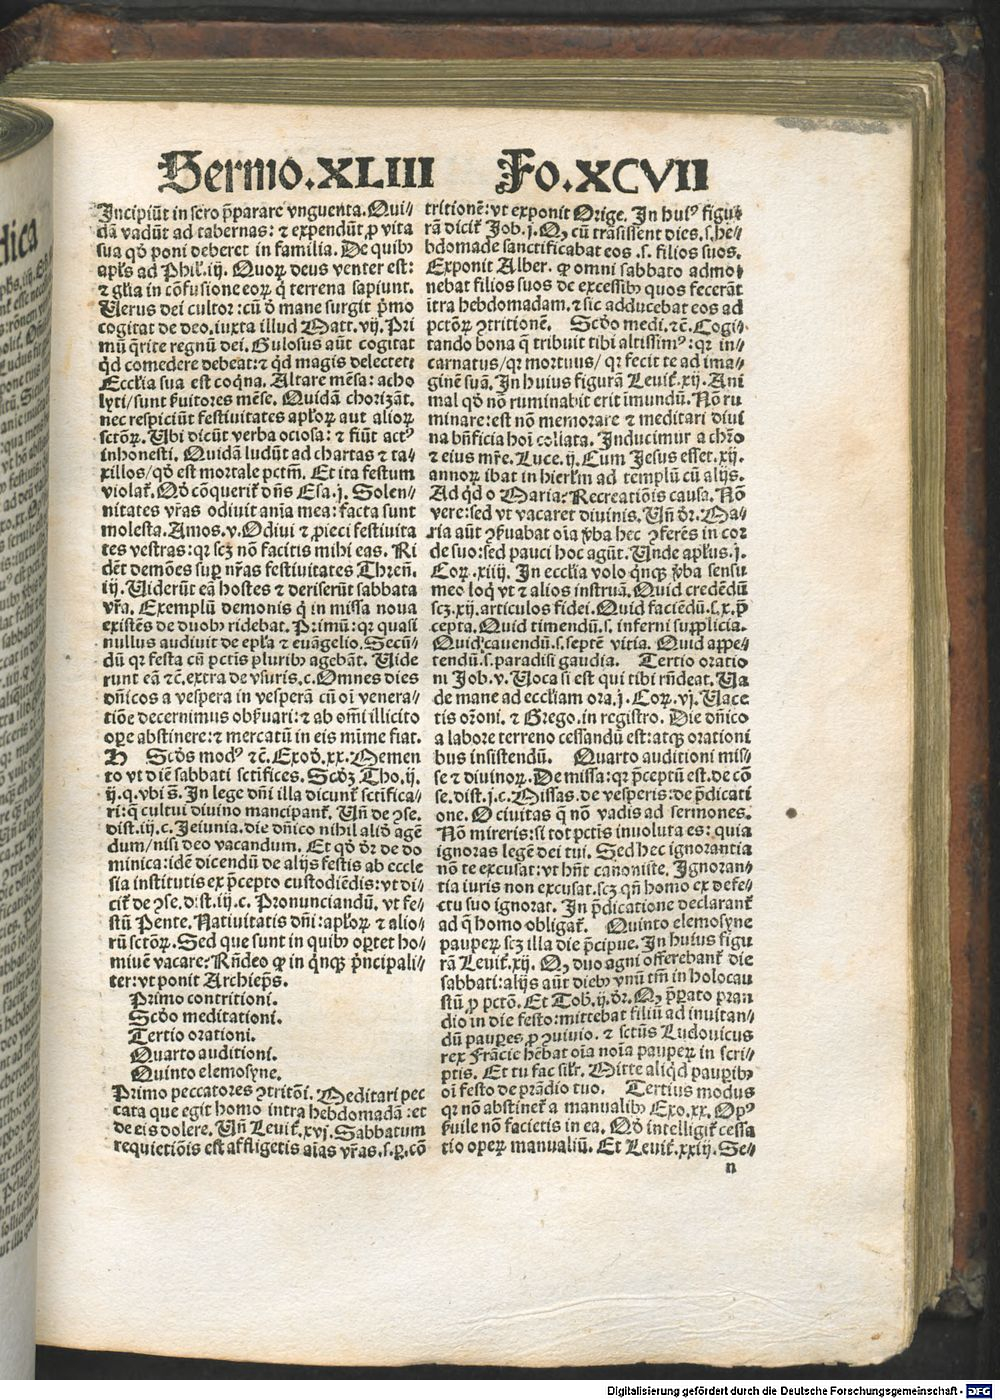 Sermo.XLIII Fo.XCVII
Incipiūt in sero p̄parare vnguenta. Qui⸗
dā vadūt ad tabernas: ⁊ expendūt ꝓ vita
sua qd̓ poni deberet in familia. De quibꝰ
apl̓s ad Phil̓. iij. Quoꝝ deus venter est:
⁊ gl̓ia in cōfusione eoꝝ q̇ terrena sapiunt.
Uerus dei cultor: cū ō mane surgit p̓mo
cogitat de deo. iuxta illud Matt. vij. Pri
mū q̄rite regnū dei. Gulosus aūt cogitat
qd̓ comedere debeat: ⁊ qd̓ magis delectet:
Eccl̓ia sua est coq̄na. Altare mēsa: acho
lyti/ sunt ẜuitores mēse. Quidā chorizāt.
nec respiciūt festiuitates apl̓oꝝ aut alioꝝ
sctōꝝ. Ubi dicūt verba ociosa: ⁊ fiūt actꝰ
inhonesti. Quidā ludūt ad chartas ⁊ ta⸗
xillos/ qd̓ est mortale pctm̄. Et ita festum
violat̄. Qd̓ cōquerit̄ dn̄s Esa. j. Solen⸗
nitates vr̄as odiuit anīa mea: facta sunt
molesta. Amos. v. Odiui ⁊ ꝓieci festiuita
tes vestras: qr scꝫ nō facitis mihi eas. Ri
dēt demōes sup̄ nr̄as festiuitates Thren̄.
iij. Uiderūt eā hostes ⁊ deriserūt sabbata
vr̄a. Exemplū demonis q̇ in missa noua
existēs de duobꝰ ridebat. Primū: qr quasi
nullus audiuit de epl̓a ⁊ euāgelio. Secū⸗
dū qr festa cū pctis pluribꝰ agebāt. Uide
runt eā ⁊c̄. extra de vsuris. c. Omnes dies
dn̄icos a vespera in vesperā cū oī venera⸗
tiōe decernimus obẜuari: ⁊ ab om̄i illicito
oꝑe abstinēs: ⁊ mercatū in eis mīme fiat.
H Scd̓s modꝰ ⁊c̄. Exod̓. xx. Memen
to vt diē sabbati sctifices. Scd̓ꝫ Tho. ij.
ij. q. vbi s̄. In lege dn̄i illa dicunt̄ sctifica⸗
ri: q̄ cultui diuino mancipant̄. Un̄ de ↄse.
dist. iij. c. Jeiunia. die dn̄ico nihil aliō agē
dum/ nisi deo vacandum. Et qd̓ dr̄ de do
minica: idē dicendū de alijs festis ab eccle
sia institutis ex p̄cepto custodiēdis: vt di⸗
cit̄ de ↄse. dist. iij. c. Pronunciandū. vt fe⸗
stū Pente. Natiuitatis dn̄i: apl̓oꝝ ⁊ alio⸗
rū sctōꝝ. Sed que sunt in quibꝰ oꝑtet ho⸗
minē vacare? Rn̄deo ꝙ in q̇nqꝫ p̓ncipali⸗
ter: vt ponit Archiep̄s.
Primo contritioni.
Scd̓o meditationi.
Tertio orationi.
Quarto auditioni.
Quinto elemosyne.
Primo peccatores ↄtritōī. Meditari pec
cata que egit homo intra hebdomadā: et
de eis dolere. Un̄ Leuit̄. xvj. Sabbatum
requietiōis est affligetis aīas vr̄as. s. ꝑ. cō
tritionē: vt exponit Orige. In huiꝰ figu⸗
rā dicit̄ Job. j. Qꝫ cū trāsissent dies. s. he⸗
bdomade sanctificabat eos. s. filios suos.
Exponit Alber. ꝙ omni sabbato admo⸗
nebat filios suos de excessibꝰ quos fecerāt
ītra hebdomadam. ⁊ sic adducebat eos ad
pctōꝝ ↄtritionē. Scd̓o medi. ⁊c̄. Cogi⸗
tando bona q̄ tribuit tibi altissimꝰ: qr in⸗
carnatus/ qr mortuus/ qr fecit te ad ima⸗
ginē suā. In huius figurā Leuit̄. xij. Ani
mal qd̓ nō ruminabit erit īmundū. Nō ru
minare: est nō memorare ⁊ meditari diui
na bn̄ficia hoī collata. Inducimur a chr̄o
⁊ eius mr̄e. Luce. ij. Cum Jesus esset. xij.
annoꝝ ibat in hierl̓m ad templū cū alijs.
Ad qd̓ o Maria? Recreatiōis causa. Nō
vere: sed vt vacaret diuinis. Un̄ dr̄. Ma⸗
ria aūt ↄẜuabat oīa v̄ba hec ↄferēs in cor
de suo: sed pauci hoc agūt. Unde apl̓us. j.
Coꝝ. xiiij. In eccl̓ia volo q̇nqꝫ v̄ba sensu
meo loq̇ vt ⁊ alios instruā. Quid credēdū
scꝫ. xij. articulos fidei. Quid faciēdū. s. x. p̄
cepta. Quid timendū. s. inferni supplicia.
Quid cauendū. s. septē vitia. Quid appe⸗
tendū. s. paradisi gaudia. Tertio oratio
ni Job. v. Uoca si est qui tibi rn̄deat. Ua
de mane ad eccl̓iam ora. j. Coꝝ. vj. Uace
tis or̄oni. ⁊ Grego. in registro. Die dn̄ico
a labore terreno cessandū est: atqꝫ orationi
bus insistendū. Quarto auditioni mis⸗
se ⁊ diuinoꝝ. De missa: qr p̄ceptū est. de cō
se. dist. j. c. Missas. de vesperis: de p̄dicati
one. O ciuitas q̄ nō vadis ad sermones.
Nō mireris: si tot pctis inuoluta es: quia
ignoras legē dei tui. Sed hec ignorantia
nō te excusat: vt hn̄t canoniste. Ignoran⸗
tia iuris non excusat. scꝫ qn̄ homo ex defe⸗
ctu suo ignorat. In p̄dicatione declarant̄
ad q̄ homo obligat̄. Quinto elemosyne
pauperꝝ scꝫ illa die p̄cipue. In huius figu
rā Leuit̄. xij. Qꝫ duo agni offerebant̄ die
sabbati: alijs aūt diebꝰ vnū tm̄ in holocau
stū ꝓ pctō. Et Tob̄. ij. dr̄. Qꝫ p̄parato pran
dio in die festo: mittebat filiū ad inuitan⸗
dū pauꝑes ꝓ ↄuiuio. ⁊ sctūs Ludouicus
rex Frācie hēbat oīa noīa pauperꝝ in scri⸗
ptis. Et tu fac sil̓r. Mitte aliqd̓ pauꝑibꝰ
oī festo de prādio tuo. Tertius modus
qr nō abstinet̄ a manualibꝰ Exo. xx. Opꝰ
ẜuile nō facietis in ea. Qd̓ intelligit̄ cessa
tio operꝝ manualiū. Et Leuit̄. xxiij. Se⸗
n
Digitalisierung gefördert durch die Deutsche Forschungsgemeinschaft - DFG